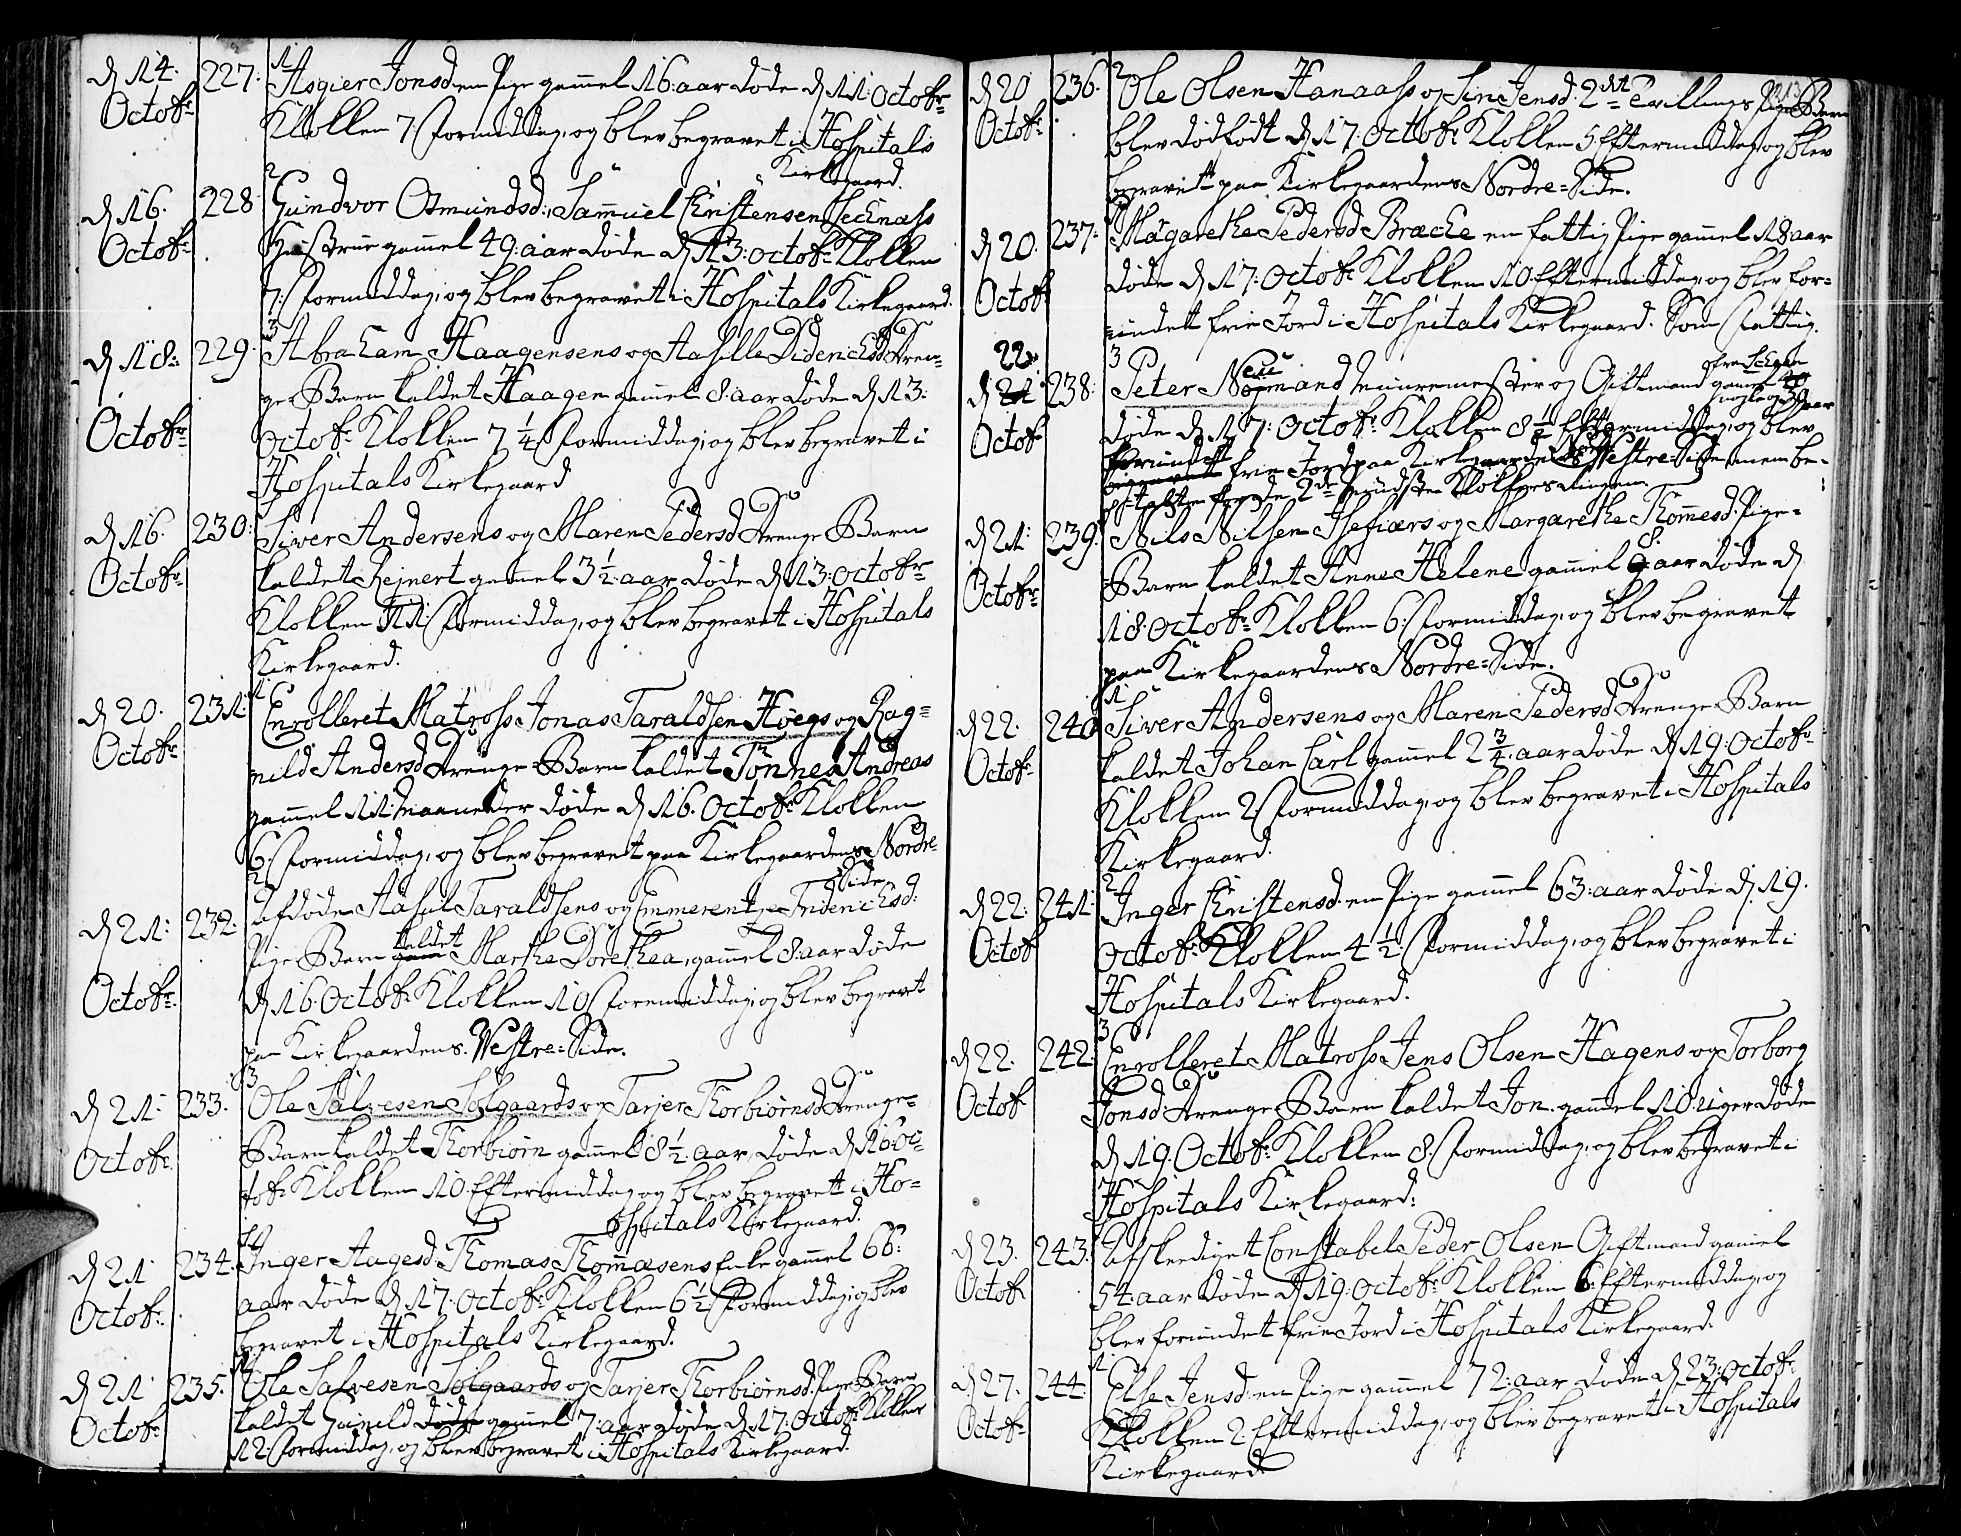 d 14. Octobr. 227. 1
Asgier Jonsd. en Pige gamel 16: aar døde d 11: Octobr
Klokken 7: Formiddag, og blev begravet i Hospitals
Kirkegaard.
d 16. Octobr. 228 2
Gundvor Osmundsd:, Samuel Christensen
Hustrue gamel 49: aar døde d 13: Octobr Klokken
7: Formiddag, og blev begravet i Hospitals Kirkegaard.
d 18: Octobr. 229. 3
Abraham Haagensens og Aasille Diderichsd Dren-
ge Barn kaldet Haagen gamel 8. aar døde d 13:
Octobr. Klokken 7 1/4 Formiddag, og blev begravet i
Hospitals Kirkegaard
d 16. Octobr. 230:
Siver Andersens og Maren Pedersd Drenge Barn
kaldet Rejnert gamel 3 1/2 aar døde d 13: Octobr
Klokken 11: Formiddag, og blev begravet i Hospitals
Kirkegaard.
d 20. Octobr. 231: 1
Enrolleret Matross Jonas Taraldsen Høegs og Rag-
nild Andersd Drenge Barn kaldet Tønnes Andreas
gammel 11 Maaneder døde d 16. Octobr: Klokken
6: Formiddag, og blev begravet paa Kirkegaardens Nordre
Side
d 21: Octobr. 232. 2
Afdøde Aasul Taraldsens og Emmerentze Friderichsd:
Pige Barn kaldet Marthe Dorethea, gamel 8. aar døde
d 16. Octobr Klokken 10 Formiddag, og blev begravt
paa Kirkegaardens Vestre-Side.
d 21: Octobr. 233. 3
Ole Salvesen Solgaards og Tarjer Thorbiørnsd Drenge-
Barn kaldet Thorbiørn gammel 8 1/2 aar, døde d 16. Oc-
tobr Klokken 10 Eftermiddag og blev begravet i Ho-
spitals Kirkegaard.
d 21 Octobr. 234.
Inger Aagesd. Thomas Thomæsens Enke gammel 66:
aar døde d 17. Octobr: Klokken 6 1/2 Formiddag, og blev
begravet i Hospitals Kirkegaard.
d 21 Octobr. 235.
Ole Salvesen Solgaards og Tarjer Thorbiørnsd. Pige Barn
kaldet Gunild døde gammel 7: aar døde d 17: Octobr Klokken
12: Formiddag, og blev begravet i Hospitals Kirkegaard.
d 20 Octobr. 236. 2
Ole Olsen Hanaass og Siri Jensd. 2de Tvillinge Pige Børn
blev dødfødt d 17: Octobr: Klokken 5 Eftermiddag, og blev
begravet paa Kirkegaardens Nordre-Side.
d 20. Octobr 237:
Margarethe Pedersd Bræcke en fattig Pige gammel 18 aar
døde d 17: Octobr Klokken 10 Eftermiddag, og blev for-
undet frie Jord i Hospitals Kirkegaard. Som Fattig.
22. d 21 Octobr 238: 3
Peter Neumand Muuremester og Giftmand gamel 39 aar
døde d 17: Octobr. Klokken 8 1/2 Eftermiddag, og blev
forundt frie Jord paa Kirkegaardens Vestre-Side, men be-
talte for de 2de
d 21: Octobr. 239.
Nils Nilsen og Margarethe Thomesd. Pige-
Barn kaldet Anne Helene gamel 8. aar døde d
18. Octobr. Klokken 6: Formiddag, og blev begravet
paa Kirkegaardens Nordre-Side.
d 22. Octobr. 240 1
Siver Andersens og Maren Pedersd Drenge Barn
kaldet Johan Carl gammel 2 3/4. aar døde d 19. Octobr.
Klokken 2 Formiddag, og blev begravet i Hospitals
Kirkegaard.
d 22: Octobr 241: 2
Inger Christensd. en Pige gammel 63: aar døde d 19.
Octobr. Klokken 4 1/2: Formiddag, og blev begravet i
Hospitals Kirkegaard.
d 22. Octobr 242. 3
Enrolleret Matross Jens Olsen Hagens og Torborg
Jonsd Drenge Barn kaldet Jon. gammel 10. Uger døde
d 19. Octobr. Klokken 8. Formiddag, og blev begravet i
Hospitals Kirkegaard:
d 23. Octobr 243.
Afskediget Constabel Peder Olsen Giftmand gamel
54. aar døde d 19. Octobr. Klokken 6. Eftermiddag, og
blev forundet frie Jord i Hospitals Kirkegaard.
d 27. Octobr. 244. 1
Else Jensd. en Pige gammel 72: aar døde d 23: Octobr.
Klokken 2 Eftermiddag, og blev begravet i Hospitals
Kirkegaard